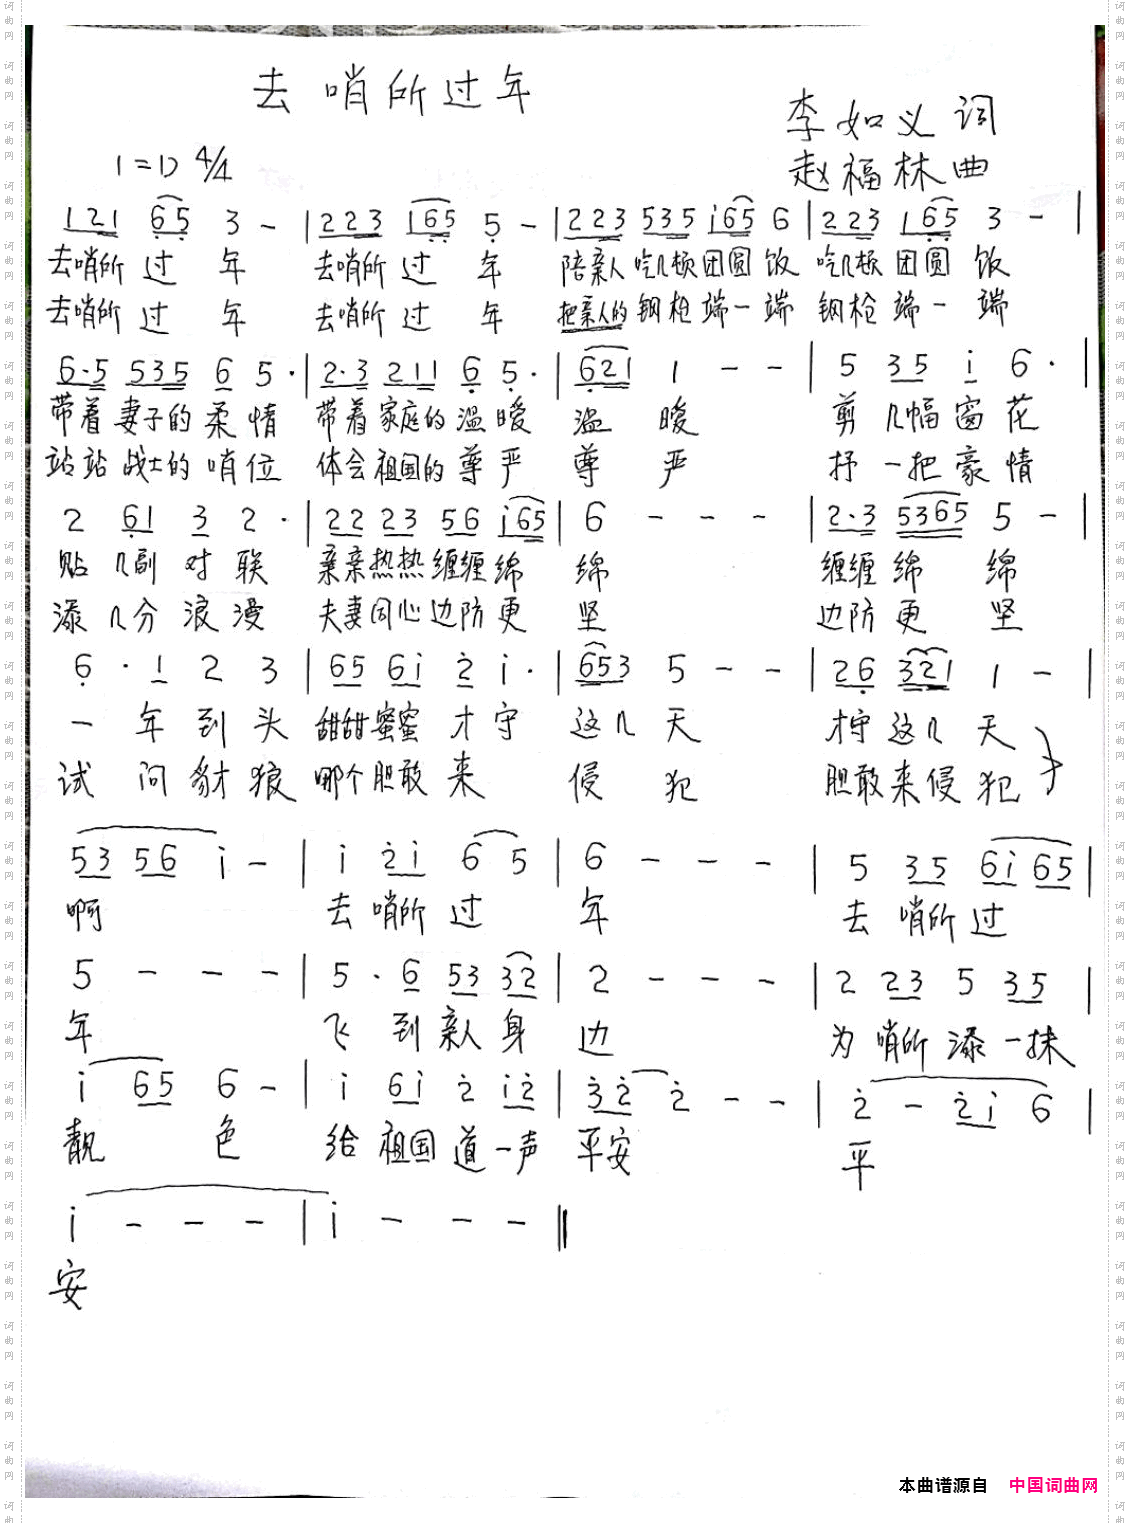 去哨所过年
李如义 词
1=D 4/4
赵福林 曲
121 65 3 - | 223 165 5 - | 223 535 i65 6 | 223 165 3 - |
去哨所 过 年 去哨所 过 年 陪亲人 吃几顿 团圆 饭 吃几顿 团圆 饭
去哨所 过 年 去哨所 过 年 把亲人的 钢枪 端一 端 钢枪 端一 端
6·5 535 6 5· | 2·3 211 6 5· | 621 1 - - | 5 35 i 6· |
带着 妻子的 柔 情 带着 家庭的 温 暖 温 暖 剪 几幅 窗 花
站站 战士的 哨 位 体会 祖国的 尊 严 尊 严 抒 一把 豪 情
2 61 3 2· | 22 23 56 i65 | 6 - - - | 2·3 5365 5 - |
贴 几副 对 联 亲亲 热热 缠缠 绵 绵 缠缠 绵 绵
添 几分 浪 漫 夫妻 同心 边防 更 坚 边防 更 坚
6· 1 2 3 | 65 6i 2 i· | 653 5 - - | 26 321 1 - |
一 年 到 头 甜甜 蜜蜜 才 守 这几 天 才守 这几 天
试 问 豺 狼 哪个 胆敢 来 侵 犯 胆敢 来侵 犯
53 56 i - | i 2i 6 5 | 6 - - - | 5 35 6i 65 |
啊 去 哨所 过 年 去 哨所 过
5 - - - | 5· 6 53 32 | 2 - - - | 2 23 5 35 |
年 飞 到 亲人 身 边 为 哨所 添 一抹
i 65 6 - | i 6i 2 i2 | 32 2 - - | 2 - 2i 6 |
靓 色 给 祖国 道 一声 平安 平
i - - - | i - - - ‖
安
本曲谱源自 中国词曲网